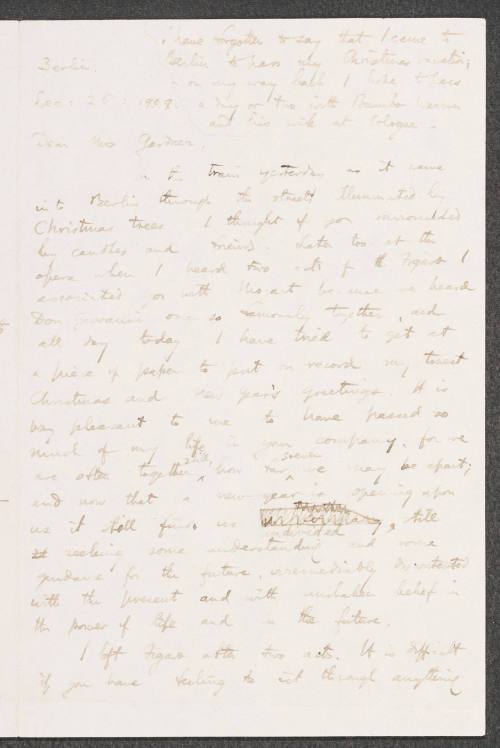 I have forgotten to say that I came to
Berlin to pass my Christmas vacation;
on my way back I hope to pass
a day or two with
and his wife at Cologne.
Berlin.
Dec: 25: 1909.
Dear Mrs Gardner,
In the train yesterday as it came
into Berlin through the streets illuminated by
Christmas trees I thought of you surrounded
by candles and friends. Later too at the
opera when I heard two acts of Figaro I
associated you with Mozart because we heard
Don Giovanni once so together, and
all day today I have tried to get at
a piece of paper to put on record my truest
Christmas and New Year's greetings. It is
very pleasant to me to have passed so
much of my life in your company, for we
are often together still, how far soever we may be apart;
and now that a new year is opening upon
us it still finds us undivided, still
seeking some understanding and some
guidance for the future, irremediably discontented
with the present and with unshaken belief in
the power of life and in the future.
I left Figaro after two acts. It is difficult
if you have feeling to sit through anything